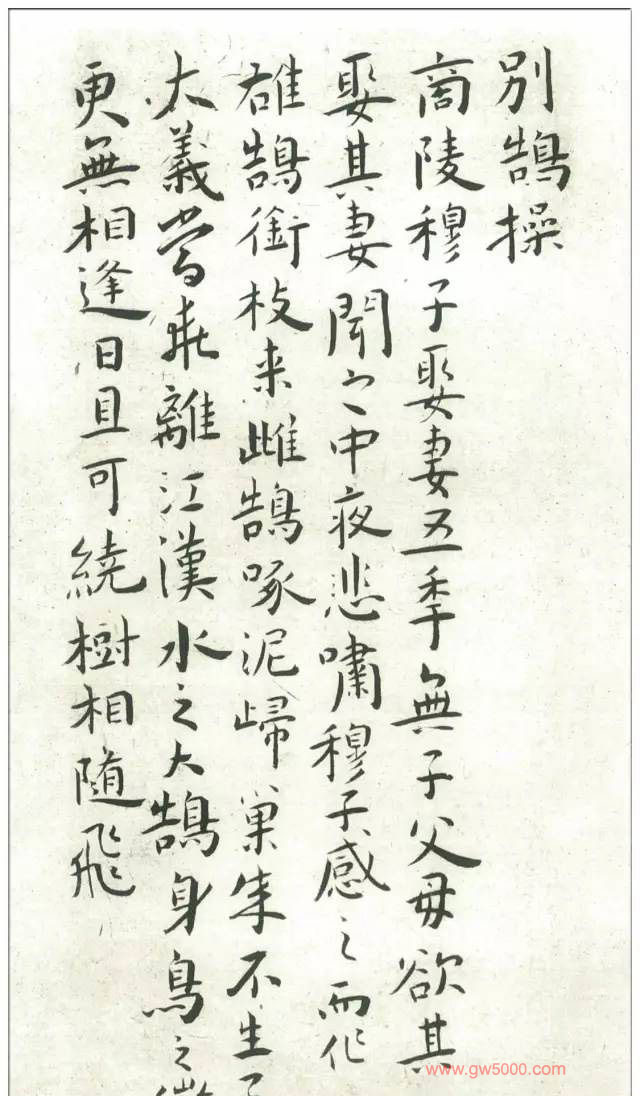 别鵠操
商陵穆子娶妻五年無子父母欲其
娶其妻聞之中夜悲嘯穆子感之而作
雄鵠銜枝来雌鵠啄泥歸巢成不生子
大義當乖離江漢水之大鵠身鳥之微
更無相逢日且可繞樹相随飛
www.gw5000.com